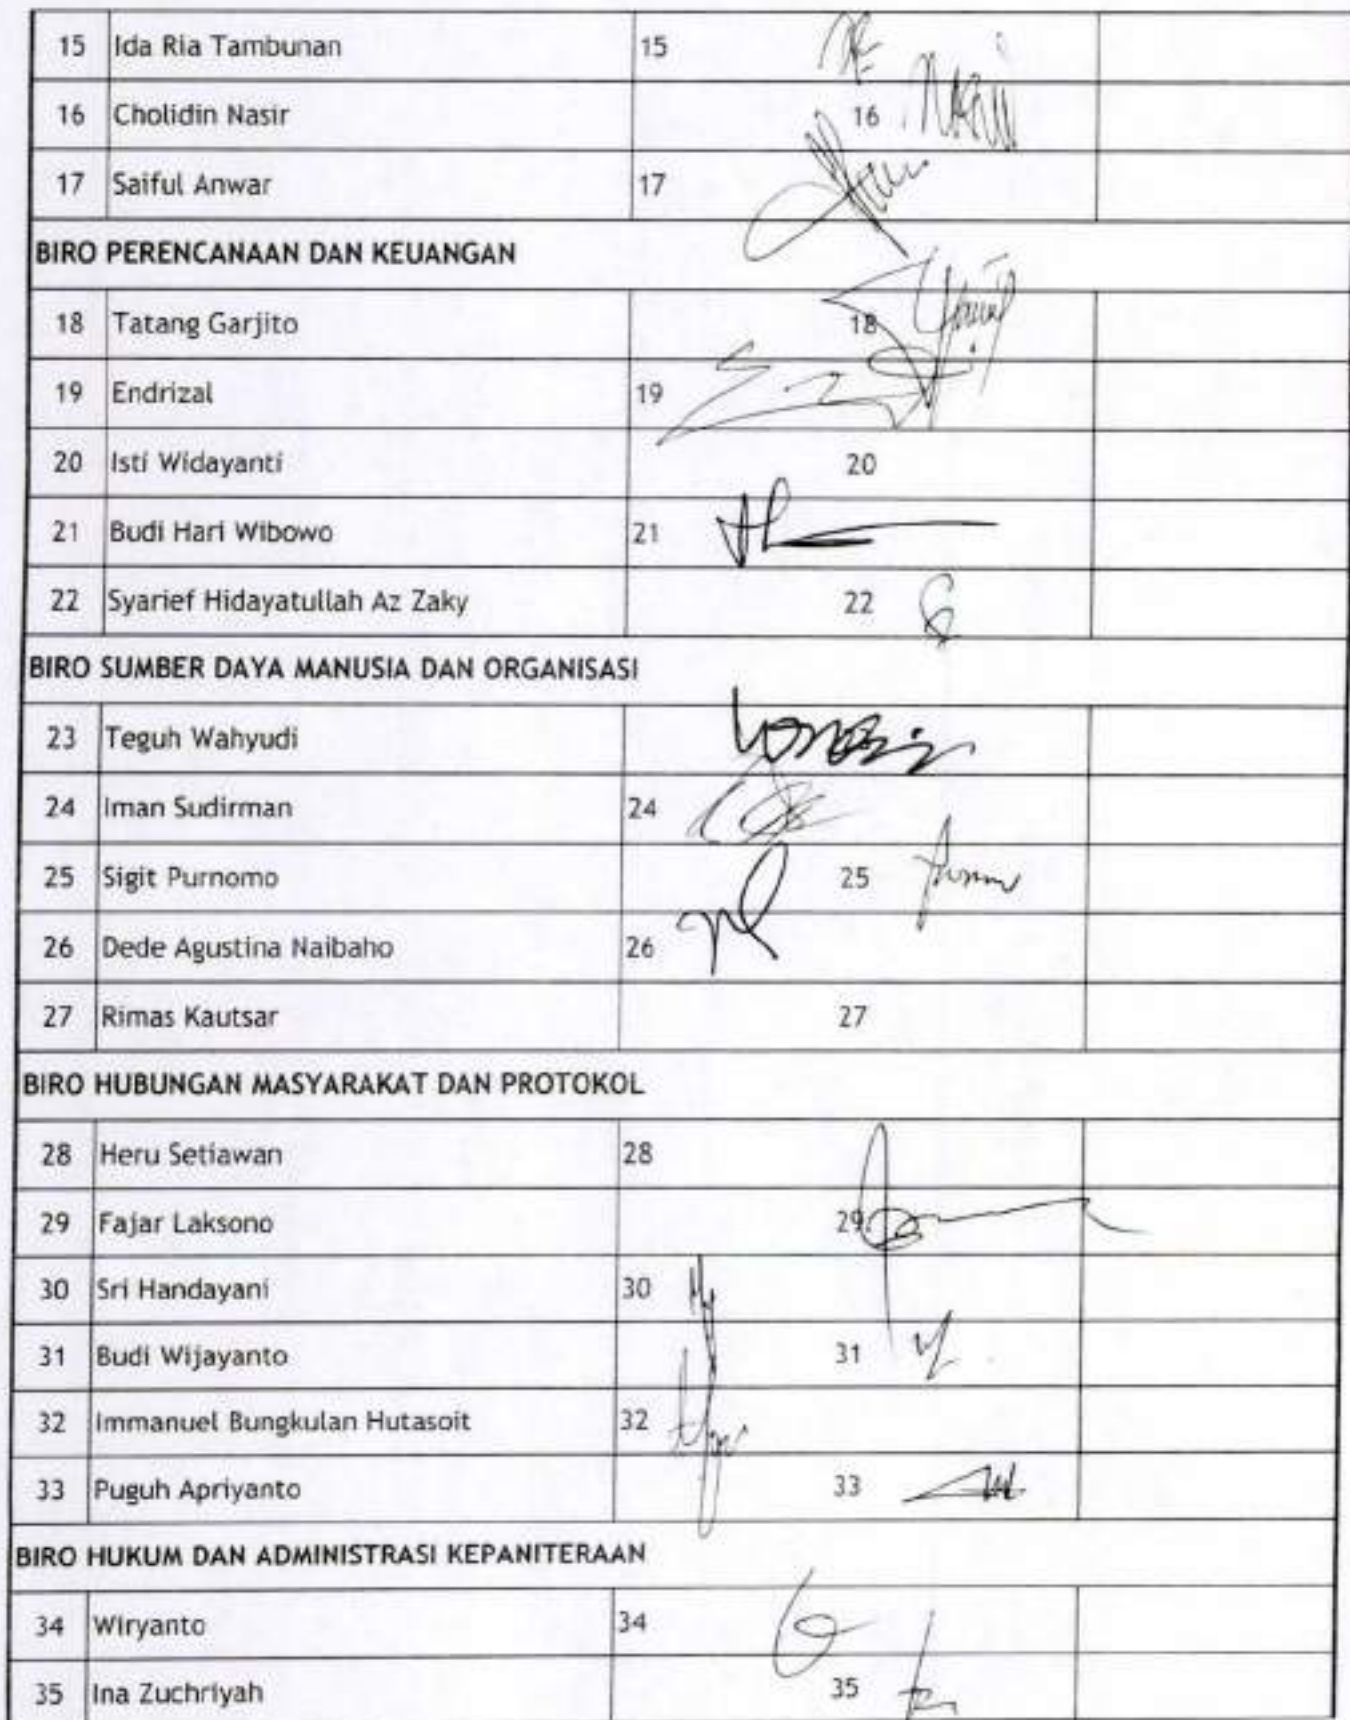 15 Ida Ria Tambunan 15
16 Cholidin Nasir 16
17 Saiful Anwar 17
BIRO PERENCANAAN DAN KEUANGAN
18 Tatang Garjito 18
19 Endrizal 19
20 Isti Widayanti 20
21 Budi Hari Wibowo 21
22 Syarief Hidayatullah Az Zaky 22
BIRO SUMBER DAYA MANUSIA DAN ORGANISASI
23 Teguh Wahyudi
24 Iman Sudirman 24
25 Sigit Purnomo 25
26 Dede Agustina Naibaho 26
27 Rimas Kautsar 27
BIRO HUBUNGAN MASYARAKAT DAN PROTOKOL
28 Heru Setiawan 28
29 Fajar Laksono 29
30 Sri Handayani 30
31 Budi Wijayanto 31
32 Immanuel Bungkulan Hutasoit 32
33 Puguh Apriyanto 33
BIRO HUKUM DAN ADMINISTRASI KEPANITERAAN
34 Wiryanto 34
35 Ina Zuchriyah 35